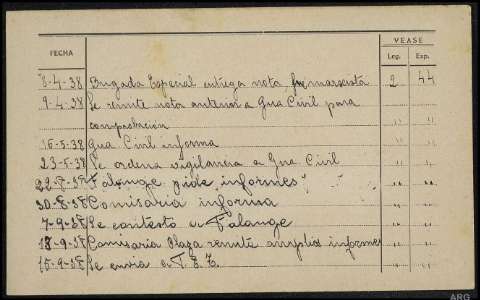 FECHA VEASE
Leg. Exp.
8-4-38 Brigada Especial entrega nota marxista 2 44
9-4-38 Se remite nota anterior a Gua Civil para " "
comprobacion " "
16-5-38 Gua Civil informa " "
23-5-38 Se ordena vigilancia a Gua Civil " "
22-8-38 Falange pide informes " "
30-8-38 Comisaria informa " "
7-9-38 Se contesto a Falange " "
-9-38 Comisaria Plaga remite amplia informes " "
15-9-38 Se envia a " "
ARG